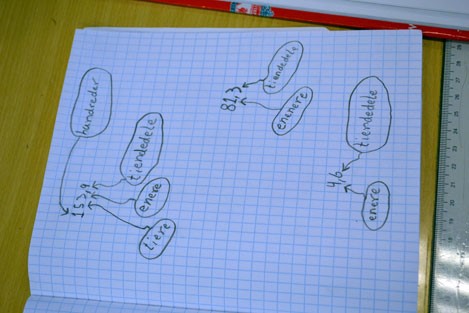 hundreder
tiendedele
enere
tiere
tiendedele
enenere
4,6
tiendedele
enere